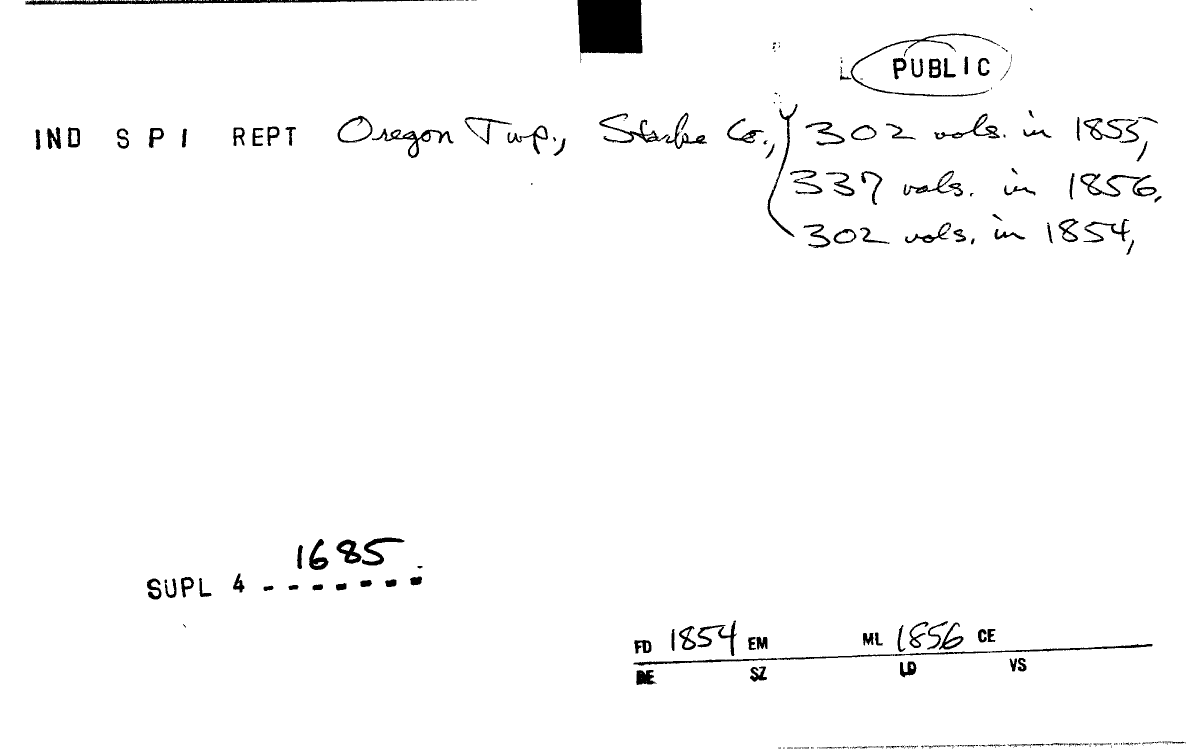 L PUBLIC
IND S P I REPT Oregon Twp., Starke Co., 302 vols. in 1855,
337 vols. in 1856.
302 vols. in 1854,
1685
SUPL 4 - - - - - - -
FD 1854 EM ML 1856 CE
DE SZ LD VS